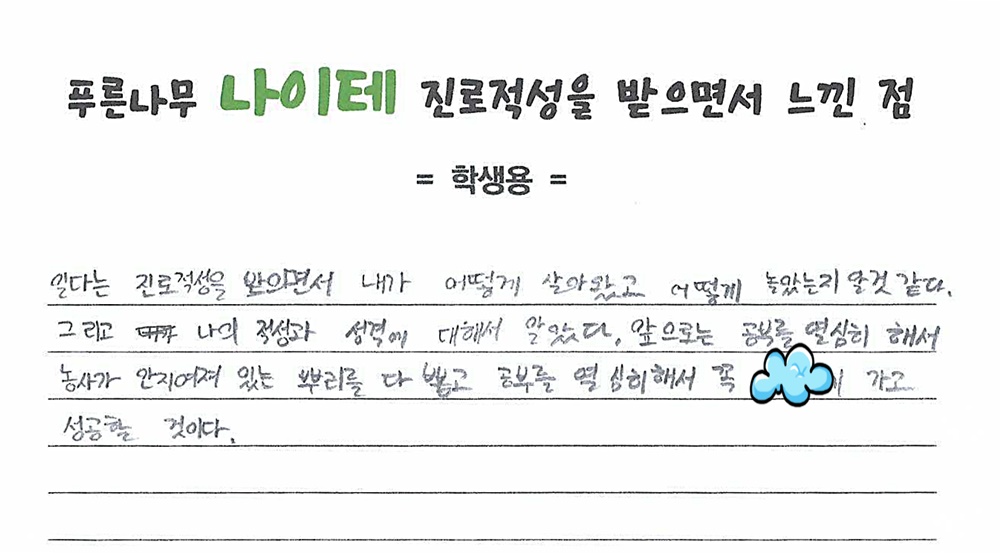 푸른나무 나이테 진로적성을 받으면서 느낀 점
= 학생용 =
일다는 진로적성을 받으면서 내가 어떻게 살아왔고 어떻게 놀았는지 알것 같다.
그리고 나의 적성과 성격에 대해서 알았다. 앞으로는 공부를 열심히 해서
농사가 안지여져 있는 뿌리를 다 뽑고 공부를 열심히해서 꼭 가고
성공할 것이다.